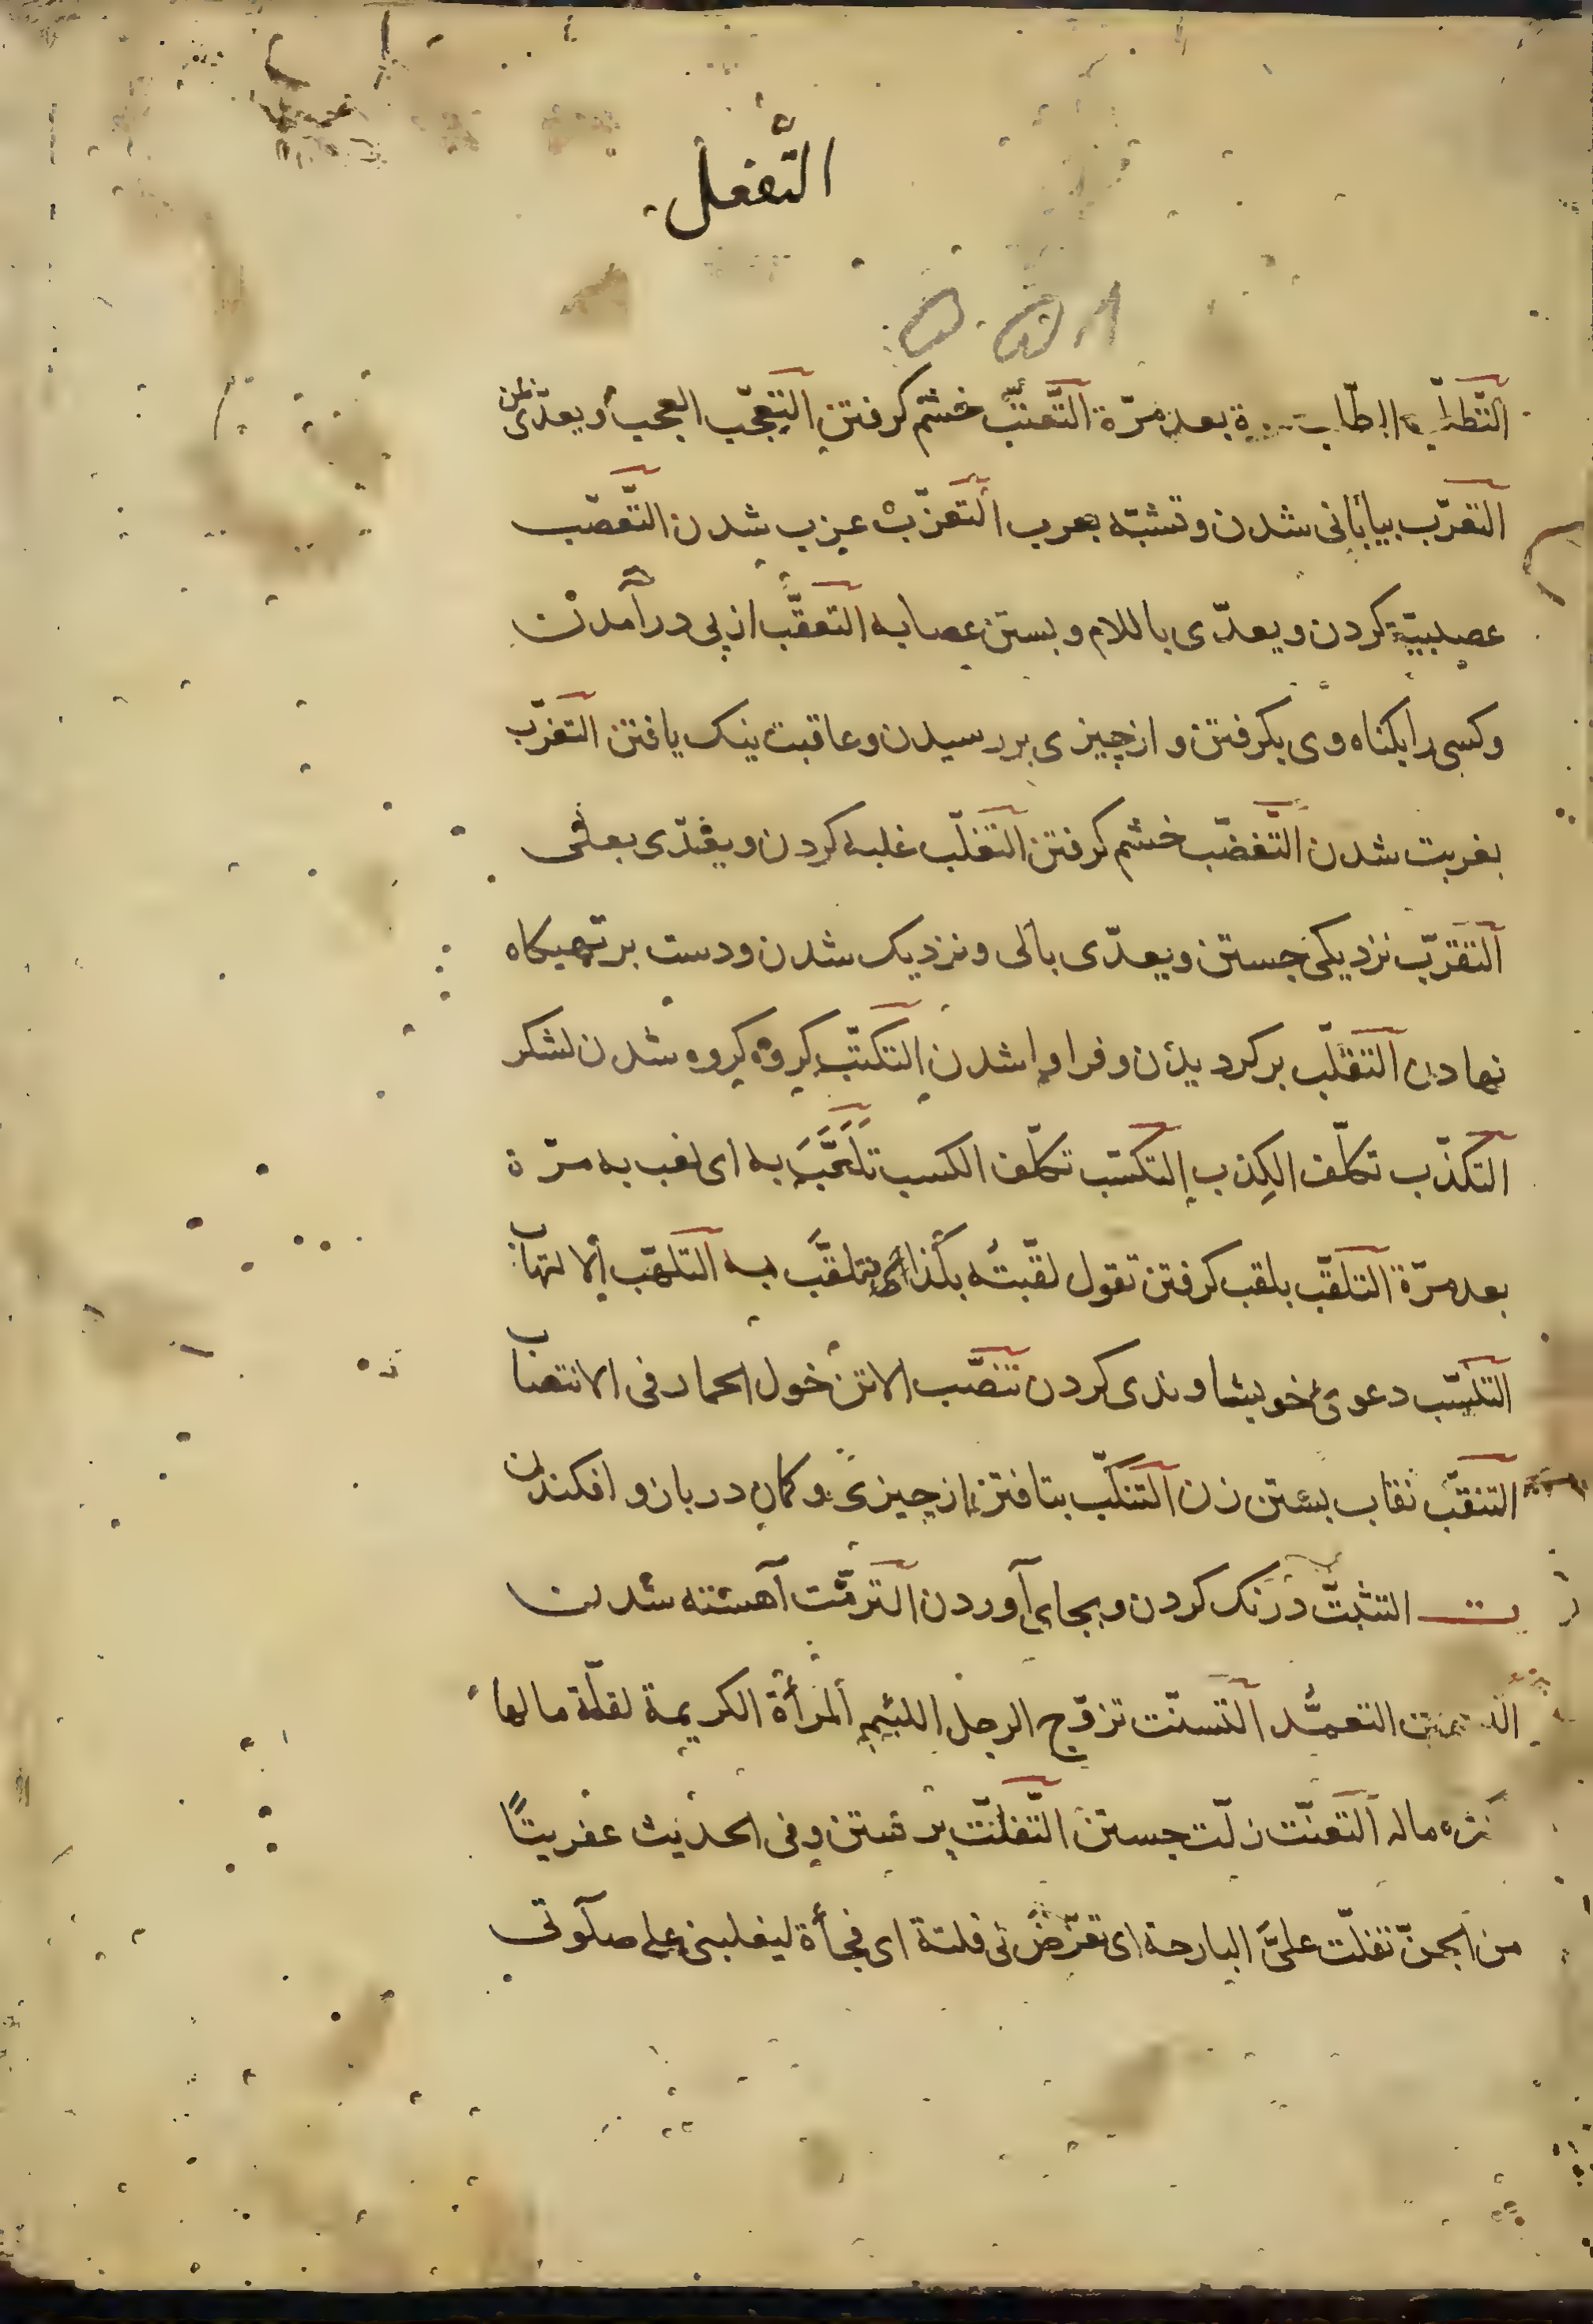 التَّفعل
التّطلّب الطلب مرّة بعد مرّة التَّعتّب خشم کرفتن التعجّب العجب و یعدّی بمن
التعرّب بیابانی شدن و تشبّه بعرب التعزّب عزیب شدن التعصّب
عصبیّة کردن و یعدّی باللام و بستن عصابه التعقّب از پی درآمدن
و کسی را بکناه وی بکرفتن و از چیزی بررسیدن و عاقبت نیک یافتن التغرّب
بغربت شدن التَّغضّب خشم کرفتن التغلّب غلبه کردن و یعدّی بعلی
التقرّب نزدیکی جستن و یعدّی بالی و نزدیک شدن و دست بر تهیکاه
نهادن التقلّب برکردیدن و فرا وا شدن التکتّب کروه کروه شدن لشکر
التکذّب تکلّف الکِذب التکسّب تکلّف الکسب تَلَعَّبَ به ای لعب به مرّة
بعد مرّة التلقّب بلقب کرفتن تقول لقّبتُه بکذا فتلقّب به التلهّب الالتهاب
التنسّب دعویٔ خویشاوندی کردن تنصّب الاتن حول الحمار فی الانتصاب
التنقّب نقاب بستن زن التنکّب بتافتن از چیزی و کمان در بازو افکندن
ت التثبّت درنک کردن و بجای آوردن التزمّت آهسته شدن
التعمّد التسنّت تزوّج الرجل اللئیم المرأة الکریمة لقلّة مالها
کثرة ماله التعنّت زلّت جستن التّفلّت برستن و فی الحدیث عفریتًا
من الجنّ تفلّت علیَّ البارحة ای تعرّض لی فلتة ای فجأة لیغلبنی علی صلوتی